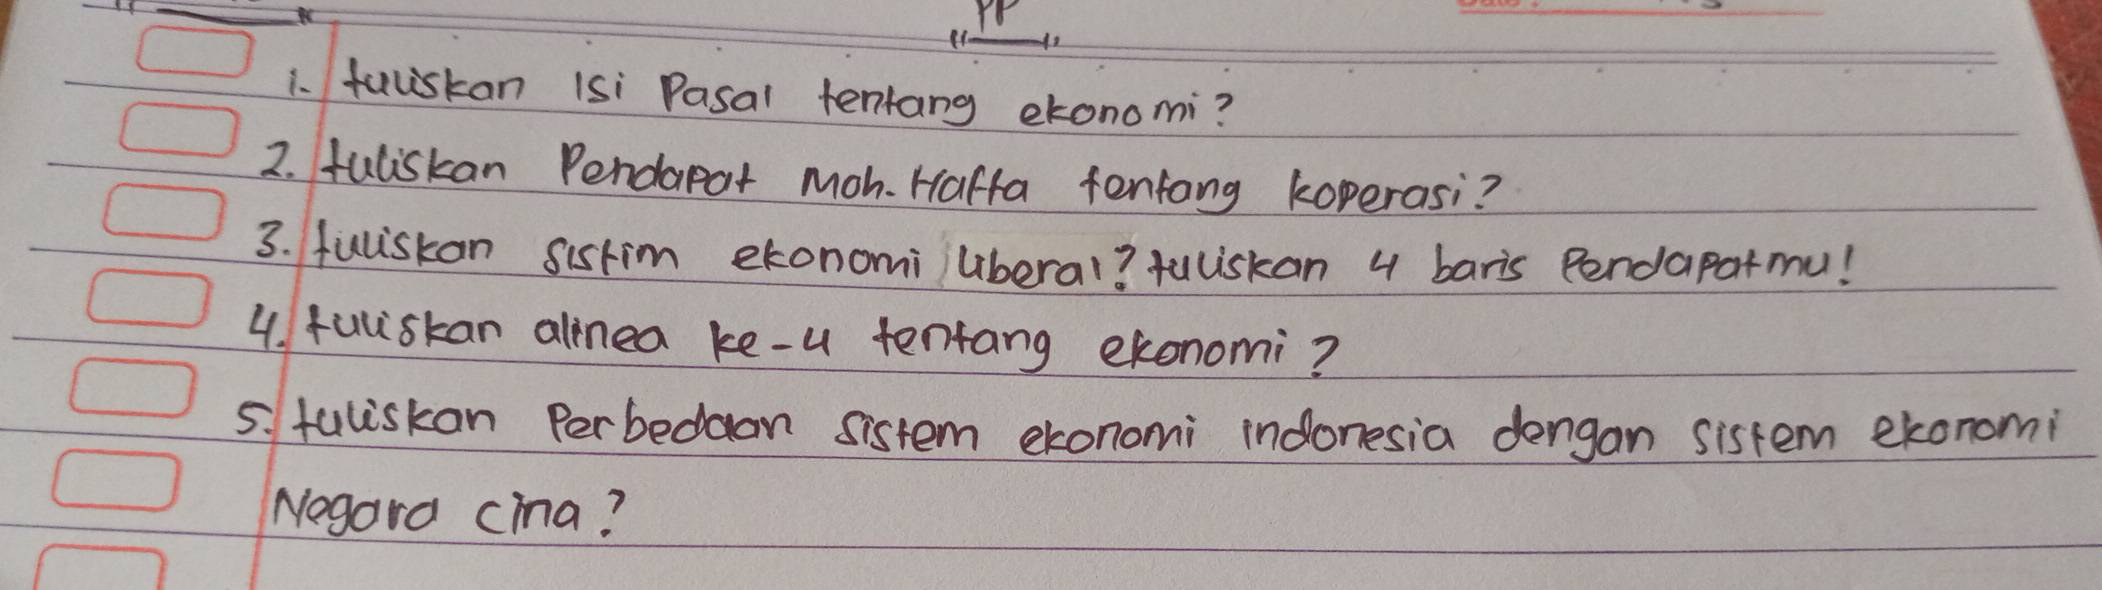 PP
1. tuliskan isi Pasal tentang ekonomi?
2. tuliskan Pendapat Moh. Hatta tentang koperasi?
3. tuliskan sistim ekonomi liberal? tuliskan 4 baris Pendapatmu!
4. tuliskan alinea ke-4 tentang ekonomi?
5. tuliskan Perbedaan sistem ekonomi indonesia dengan sistem ekonomi
Negara cina?